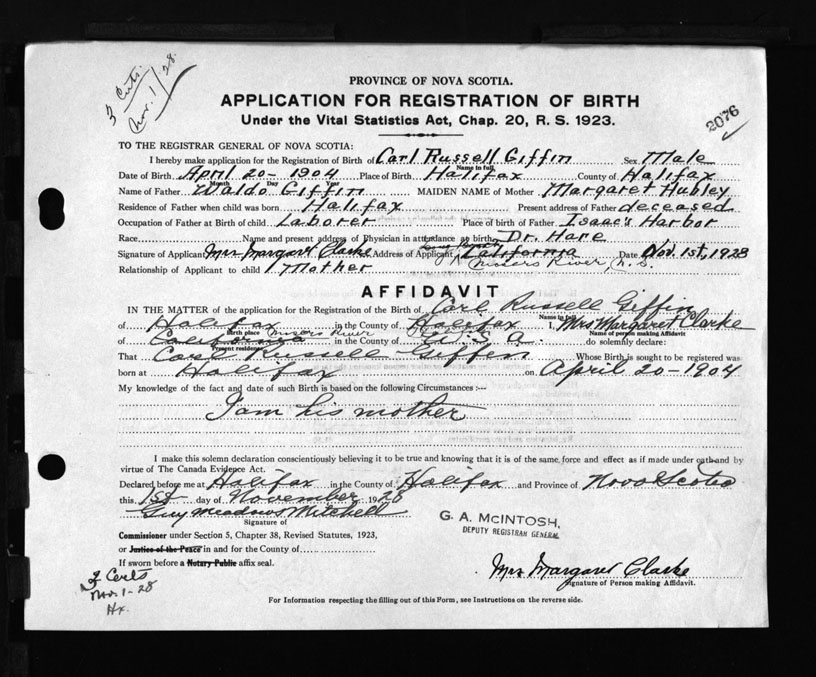 3 Certs.
Nov. 1/28.
PROVINCE OF NOVA SCOTIA.
APPLICATION FOR REGISTRATION OF BIRTH
Under the Vital Statistics Act, Chap. 20, R. S. 1923.
2076
TO THE REGISTRAR GENERAL OF NOVA SCOTIA:
I hereby make application for the Registration of Birth of Carl Russell Giffin Sex Male
Name in full
Date of Birth April 20 - 1904 Place of Birth Halifax County of Halifax
Month Day Year
Name of Father Waldo Giffin MAIDEN NAME of Mother Margaret Hubley
Residence of Father when child was born Halifax Present address of Father deceased
Occupation of Father at Birth of child Laborer Place of birth of Father Isaac's Harbor
Race Name and present address of Physician in attendance at birth Dr. Hare
Signature of Applicant Mrs Margaret Clarke Address of Applicant California Date Nov. 1st, 1928
Relationship of Applicant to child Mother River, N.S.
AFFIDAVIT
IN THE MATTER of the application for the Registration of the Birth of Carl Russell Giffin
Name in full
of Halifax in the County of Halifax I, Mrs Margaret Clarke
Birth place River Name of person making Affidavit
of California in the County of U.S.A. do solemnly declare:
Present residence
That Carl Russell Giffen Whose Birth is sought to be registered was
born at Halifax on April 20 - 1904
My knowledge of the fact and date of such Birth is based on the following Circumstances :—
I am his mother
I make this solemn declaration conscientiously believing it to be true and knowing that it is of the same force and effect as if made under oath and by
virtue of The Canada Evidence Act.
Declared before me at Halifax in the County of Halifax and Province of Nova Scotia
this 1st day of November 1928
Guy Meadows Mitchell
Signature of
G. A. McINTOSH,
DEPUTY REGISTRAR GENERAL
Commissioner under Section 5, Chapter 38, Revised Statutes, 1923,
or Justice of the Peace in and for the County of
If sworn before a Notary Public affix seal.
Mrs Margaret Clarke
Signature of Person making Affidavit.
3 Certs
Nov. 1-28
Hx.
For Information respecting the filling out of this Form, see Instructions on the reverse side.